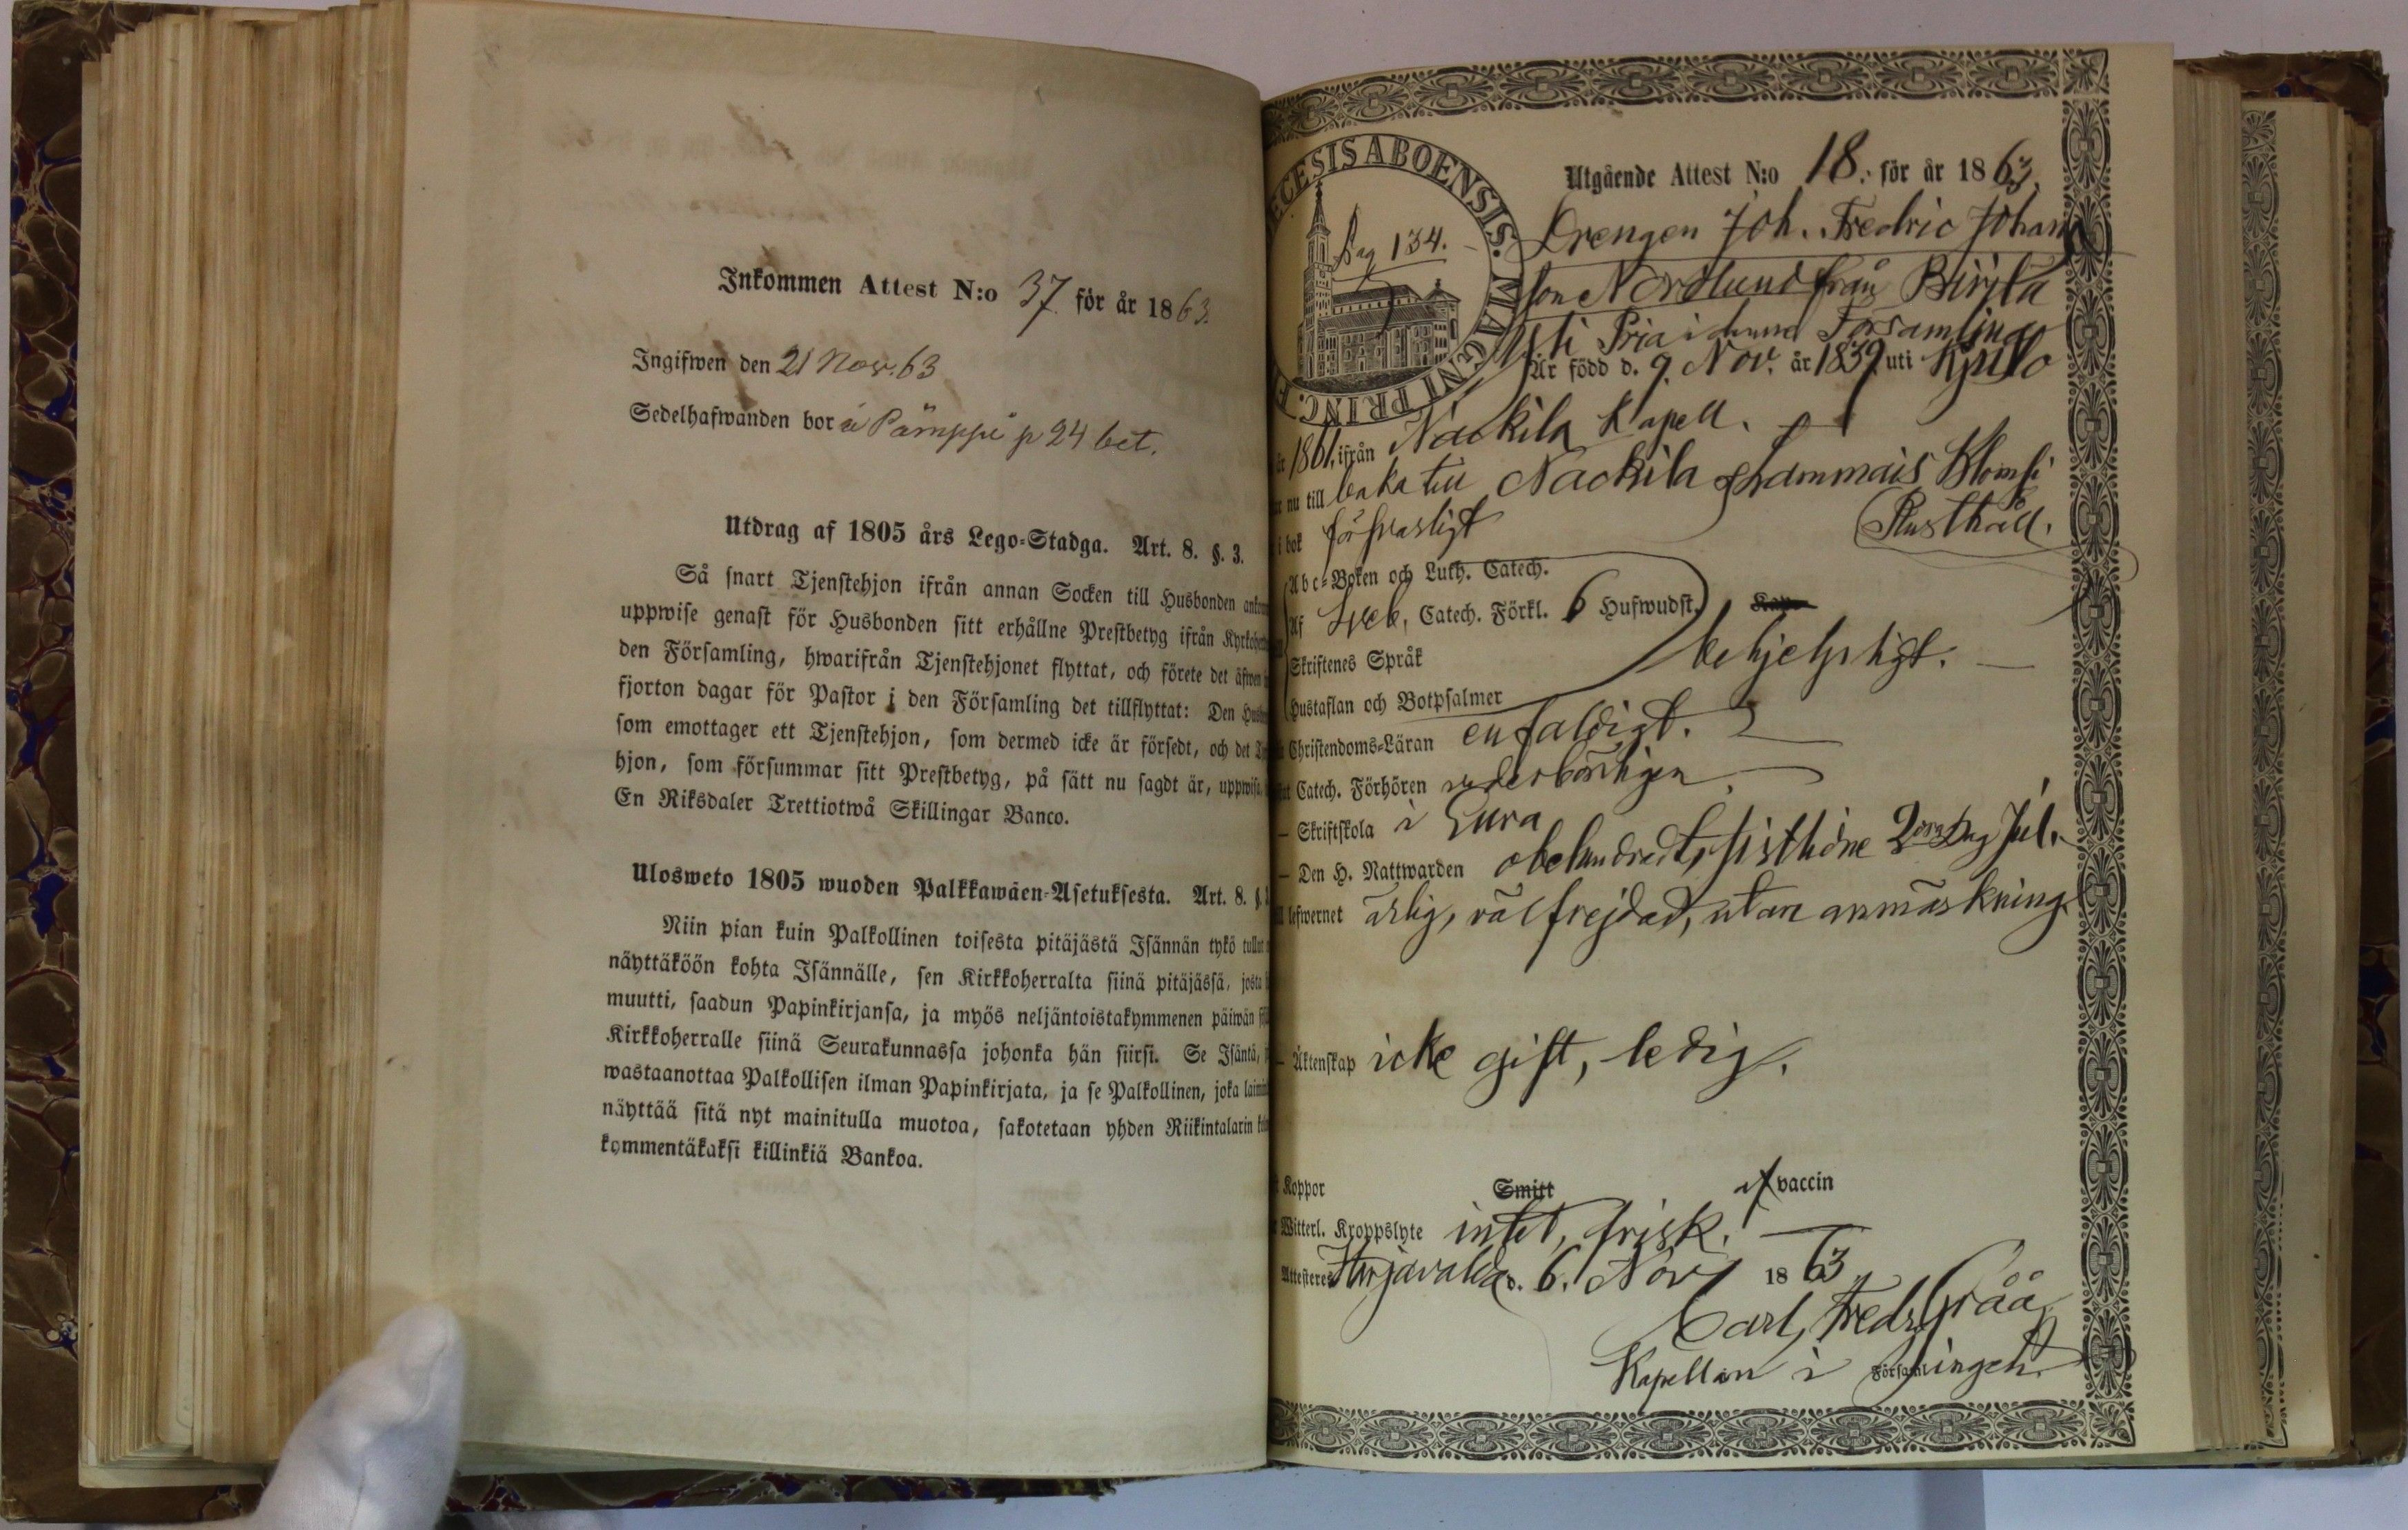 Inkommen Attest N:o 37 för år 1863.
Ingifwen den 21 Nov. 63
Sedelhafwanden bor å Pämppi p 24 bet.
Utdrag af 1805 års Lego-Stadga. Art. 8. §. 3.
Så snart Tjenstehjon ifrån annan Socken till Husbonden
uppwise genast för Husbonden sitt erhållne Prestbetyg ifrån
den Församling, hwarifrån Tjenstehjonet flyttat, och förete det äfwen
fjorton dagar för Pastor i den Församling det tillflyttat: Den
som emottager ett Tjenstehjon, som dermed icke är försedt, och det
hjon, som försummar sitt Prestbetyg, på sätt nu sagdt är, uppwisa,
En Riksdaler Trettiotwå Skillingar Banco.
Ulosweto 1805 wuoden Palkkawäen-Asetuksesta. Art. 8. §.
Niin pian kuin Palkollinen toisesta pitäjästä Isännän tykö
näyttäköön kohta Isännälle, sen Kirkkoherralta siinä pitäjässä, josta
muutti, saadun Papinkirjansa, ja myös neljäntoistakymmenen päiwän
Kirkkoherralle siinä Seurakunnassa johonka hän siirsi. Se Isäntä,
wastaanottaa Palkollisen ilman Papinkirjata, ja se Palkollinen, joka
näyttää sitä nyt mainitulla muotoa, sakotetaan yhden Riikintalarin
kymmentäkaksi killinkiä Bankoa.
ECESIS ABOENSIS. MAGNI PRINC. F
Pag 134.
Utgående Attest N:o 18. för år 1863.
Drengen Joh. Fredric Johans
son Nordlund från Birjla
Pria i denna Församling
Är född d. 9. Nov. år 1839 uti Kjulo
1861, ifrån Nackila Kapell.
nu till baka till Nackila Lammais
Rusthåll.
i bok försvarligt
Abc-Boken och Luth. Catech.
Af Sveb. Catech. Förkl. 6 Hufwudst.
Skriftenes Språk behjelpligt.
Hustaflan och Botpsalmer
Christendoms-Läran enfaldigt.
Catech. Förhören vederbörligen
— Skriftskola i Eura
— Den H. Nattwarden obehindradt, sisthðne 2dra Dag Jul.
lefwernet ärlig, välfrejdad, utan anmärkning.
— Äktenskap icke gift, ledig.
Koppor Smitt af vaccin
Witterl. Kroppslyte intet, frisk.
Attesteres Harjavalta d. 6. Nov 1863
Carl Fredr. Gråå
Kapellan i Församlingen.